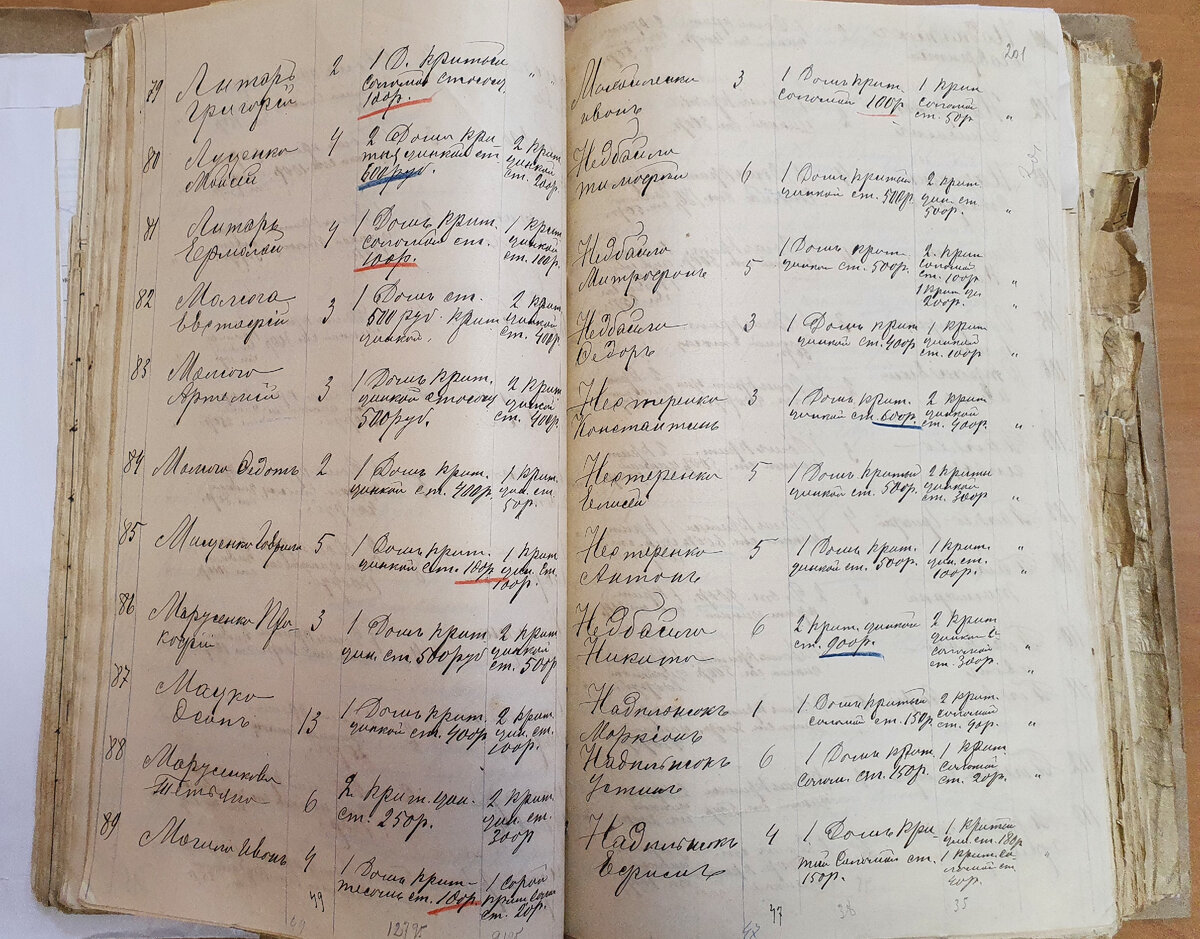 79 Литарь 2 1 Д. критый " "
Григорій соломой стоющ.
100р.
80 Луценко 4 2 Дома кри- 2 крит.
Мойсей тые цинкой ст. цинкой
600руб. ст. 200р.
81 Литарь 4 1 Домъ крит. 1 крит.
Ермолай соломой ст. цинкой
100р. ст. 100р.
82 Малюга 3 1 Домъ ст. 2 крит.
Евстафій 500 руб. крит. цинкой
цинкой. ст. 400р
83 Малюга 3 1 Домъ крит. 2 крит.
Артемій цинкой стоющ. цинкой
500руб. ст. 400р.
84 Малюга Федотъ 2 1 Домъ крит. 1 крит.
цинкой ст. 400р. цин. ст.
50р.
85 Гаврило 5 1 Домъ крит. 1 крит.
цинкой ст. 100р. цин. ст.
100р.
86 Марусенко Про- 3 1 Домъ крит. 2 крит.
кофій цин. ст. 500руб цинкой
ст. 500р.
87 Мацко 13 1 Домъ крит. 2 крит.
Осипъ цинкой ст. 400р. цин. ст.
100р.
88 6 2 крит. цин. 2 крит.
ст. 250р. цин. ст.
200р
89 Могила Иванъ 4 1 Домъ крит. 1 Сарай
ст. 100р. крит. солом.
49 ст. 20р.
49 12795 9195
201
3 1 Домъ крит. 1 крит.
Иванъ соломой 100р. соломой
ст. 50р. "
Недбайло
Тимофей 6 1 Домъ критый 2 крит.
цинкой ст. 500р. цин. ст.
500р. "
Недбайло 1 Домъ крит. 2 крит.
Митрофанъ 5 цинкой ст. 500р. соломой
ст. 100р. "
1 крит. ци.
200р. "
Недбайло 3 1 Домъ крит. 1 крит.
Федоръ цинкой ст. 400р. цинкой
ст. 100р. "
Нестеренко 3 1 Домъ крит. 2 крит.
Константинъ цинкой ст. 600р. цинкой
ст. 400р. "
Нестеренко 5 1 Домъ критый 2 криты
Елисей цинкой ст. 500р. цинкой
ст. 300р. "
Нестеренко 5 1 Домъ крит. 1 крит. "
Антонъ цинкой ст. 500р. цин. ст.
100р. "
Недбайло 6 2 крит. цинкой 2 крит.
Никита ст. 900р. цинкой и
соломой "
ст. 300р. "
1 1 Домъ критый 2 крит.
соломой ст. 150р соломой
ст. 90р. "
6 1 Домъ крит. 1 крит.
Устинъ солом. ст. 150р. соломой
ст. 20р. "
4 1 Домъ кри- 1 критый
Ефимъ тый соломой ст. цин. ст. 180р
150р. 1 крит. со-
ломой ст.
40р.
47 47 38 35